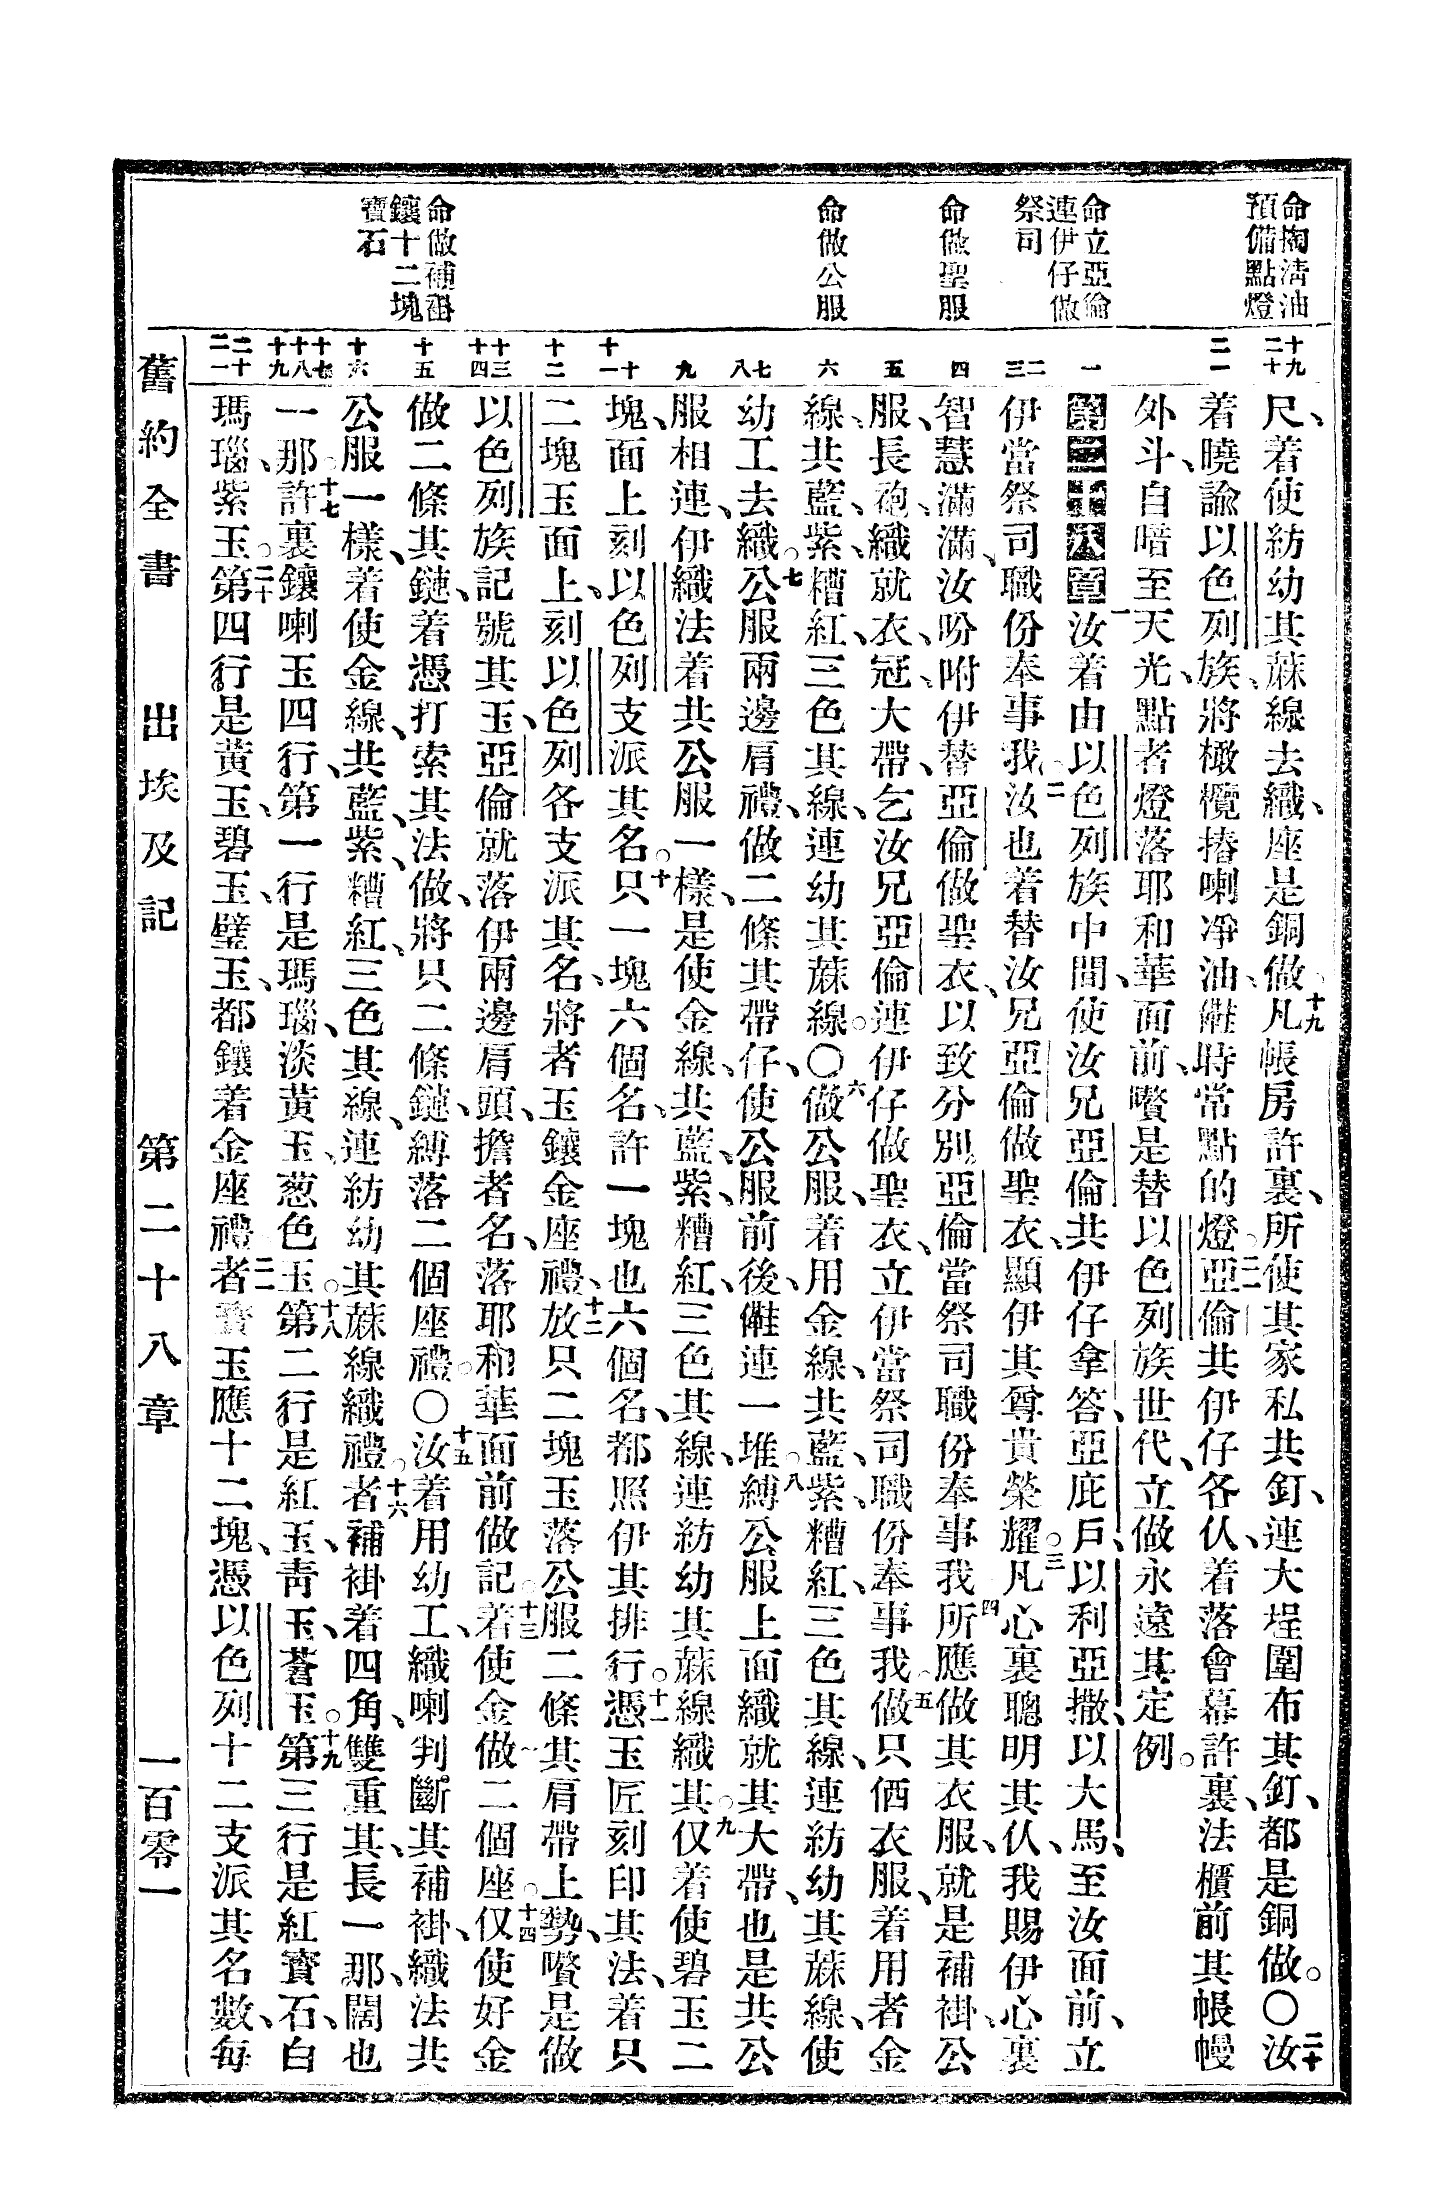 命掏淸油
預備點燈
命立亞倫
連伊仔做
祭司
命做聖服
命做公服
命做補褂
鑲十二塊
寶石
十九
二十
二一
一
二
三
四
五
六
七
八
九
十
十一
十二
十三
十四
十五
十六
十七
十八
十九
二十
二一
尺、着使紡幼其蔴線去織、座是銅做、十九凡帳房許裏、所使其家私共釘、連大埕圍布其釘、都是銅做。〇二十汝
着曉諭以色列族、將橄欖摏喇凈油、𣍐時常點的燈、二一亞倫共伊仔各仈、着落會幕許裏、法櫃前其帳幔
外斗、自暗至天光、點者燈落耶和華面前、嚽是替以色列族世代、立做永遠其定例。
第二十八章一汝着由以色列族中間、使汝兄亞倫共伊仔拿答、亞庇戶、以利亞撒、以大馬、至汝面前、立
伊當祭司職份奉事我、二汝也着替汝兄亞倫做聖衣、顯伊其尊貴榮耀。三凡心裏聰明其仈、我賜伊心裏
智慧滿滿、汝吩咐伊替亞倫做聖衣、以致分別亞倫當祭司職份奉事我、四所應做其衣服、就是補褂、公
服、長袍、織就衣、冠、大帶、乞汝兄亞倫連伊仔做聖衣、立伊當祭司職份奉事我、五做只俩衣服、着用者金
線、共藍、紫、糟紅、三色其線、連幼其蔴線。〇六做公服、着用金線、共藍、紫、糟紅、三色其線、連紡幼其蔴線、使
幼工去織。七公服兩邊肩禮、做二條其帶仔、使公服前後、𣍐連一堆、八縛公服上面織就其大帶、也是共公
服相連、伊織法着共公服一樣、是使金線、共藍、紫、糟紅、三色其線、連紡幼其蔴線織其。九仅着使碧玉二
塊、塊面上刻、以色列支派其名。十只一塊六個名、許一塊也六個名、都照伊其排行。十一憑玉匠刻印其法、着只
二塊玉面上、刻以色列各支派其名、將者玉鑲金座禮、十二放只二塊玉落公服二條其肩帶上勢、嚽是做
以色列族記號其玉、亞倫就落伊兩邊肩頭、擔者名、落耶和華面前做記、十三着使金做二個座、十四仅使好金
做二條其鏈、着憑打索其法做、將只二條鏈、縛落二個座禮。〇十五汝着用幼工、織喇判斷其補褂、織法共
公服一樣、着使金線、共藍、紫、糟紅、三色其線、連紡幼其蔴線織禮。十六者補褂着四角、雙重其、長一那、闊也
一那、十七許裏鑲喇玉四行、第一行是瑪瑙、淡黃玉、葱色玉、十八第二行是紅玉、靑玉、蒼玉。十九第三行是紅寶石、白
瑪瑙、紫玉。二十第四行是黃玉、碧玉、璧玉、都鑲着金座禮、二一者寶玉應十二塊、憑以色列十二支派其名數、每
舊約全書　出埃及記　第二十八章　一百零一